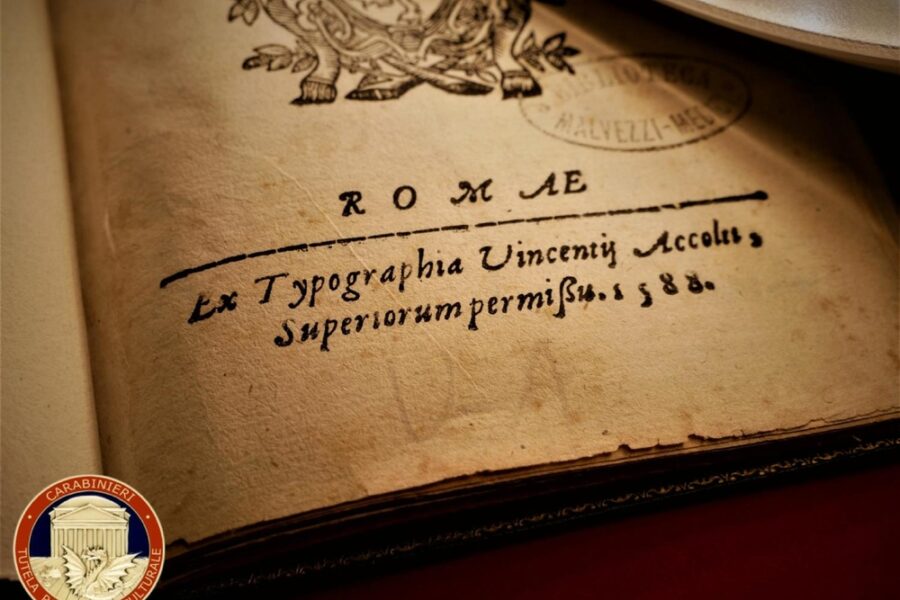 BIBLIOTECA
MALVEZZI-MED
ROMAE
Ex Typographia Vincentij Accolti,
Superiorum permißu. 1588.
V A
CARABINIERI
TUTELA P CULTURALE